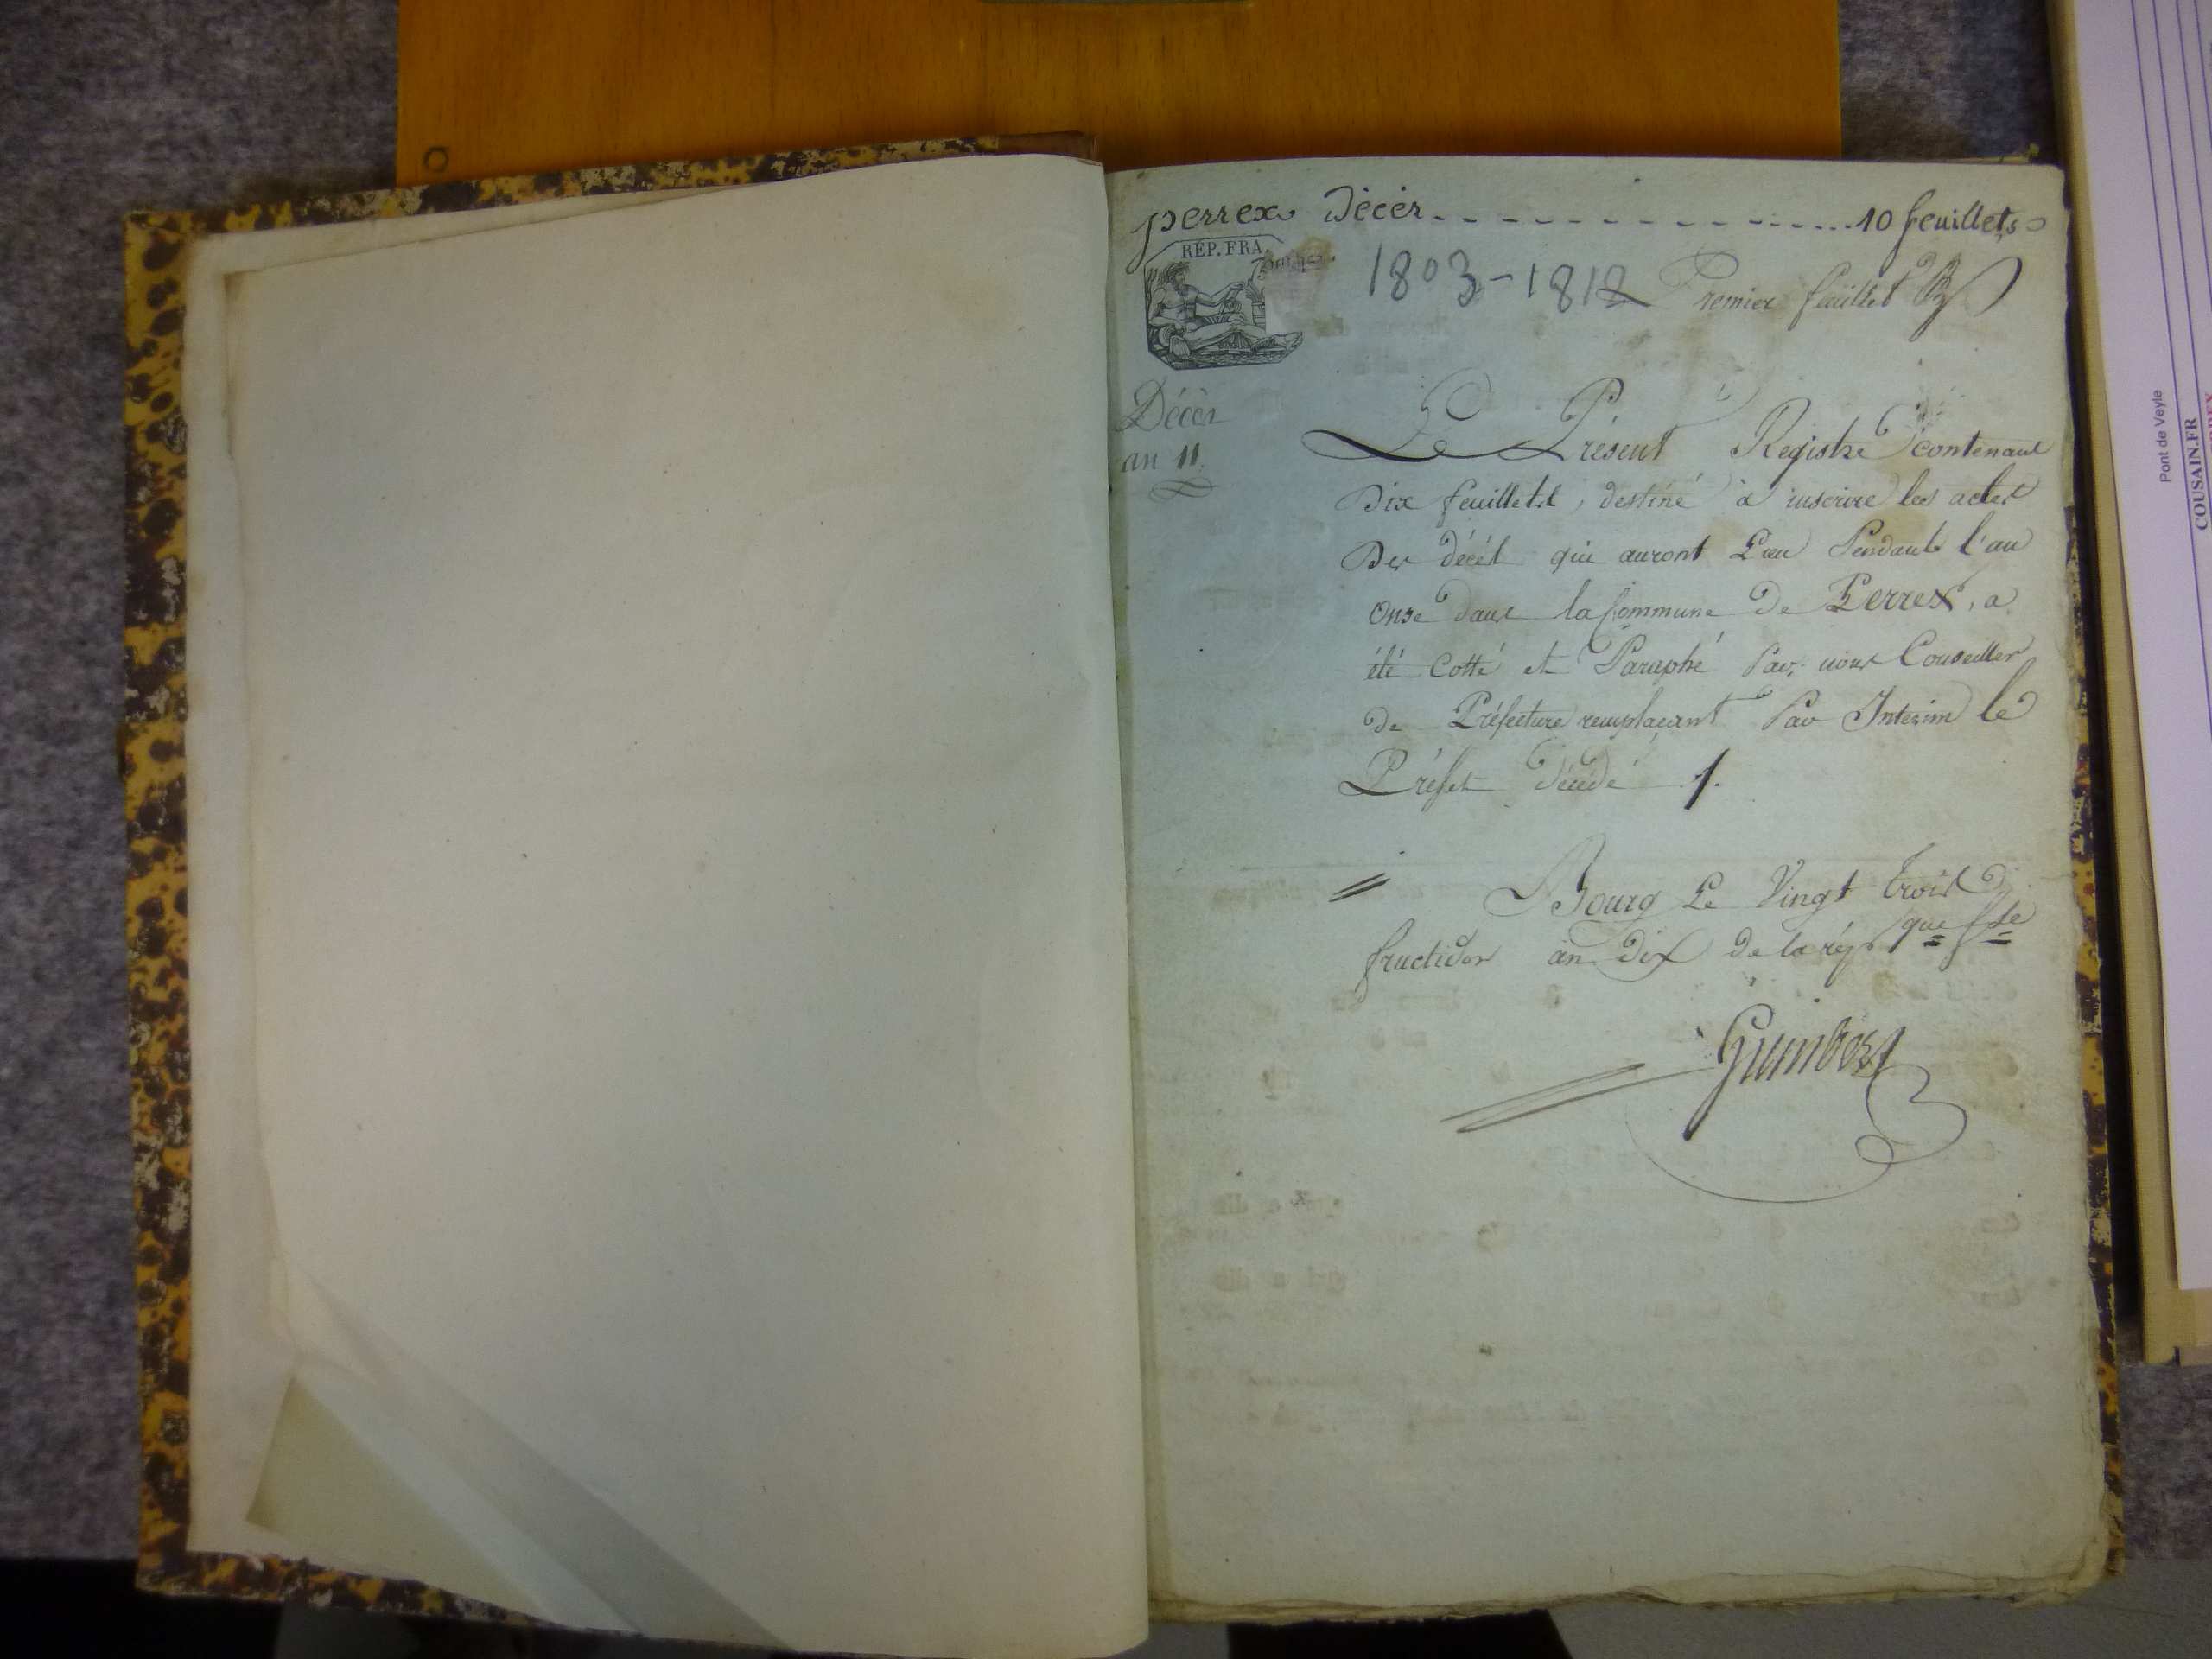 perrex Décès 10 feuillets
RÉP. FRA.
1803-1812 Premier feuillet
Décès
an 11.
Le Présent Registre contenant
Dix feuillets, destiné à inscrire les actes
Des décès qui auront Lieu Pendant l'an
Onze dans la Commune de Perrex, a
été Cotté et Paraphé Par nous Conseiller
de Préfecture remplaçant Par Interim le
Préfet décédé
Bourg Le Vingt trois
fructidor an Dix de la rép que fse
Pont de Veyle
COUSAIN.FR